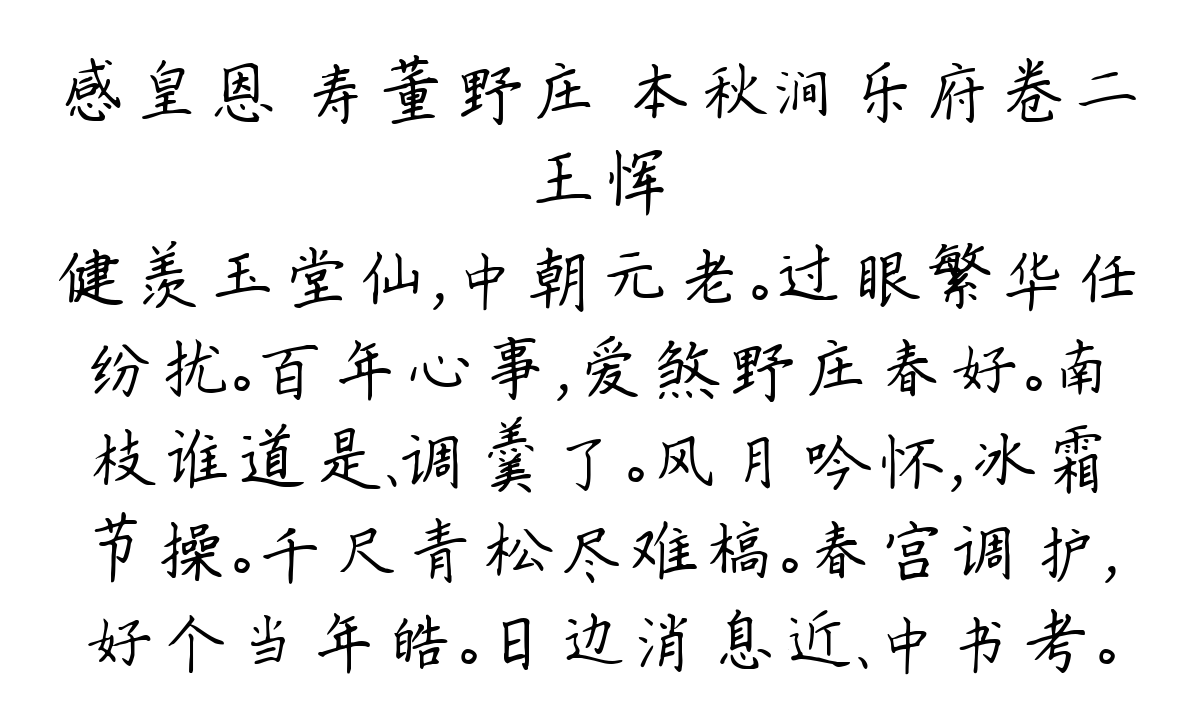 感皇恩 寿董野庄 本秋涧乐府卷二
王恽
健羡玉堂仙,中朝元老。过眼繁华任
纷扰。百年心事,爱煞野庄春好。南
枝谁道是、调羹了。风月吟怀,冰霜
节操。千尺青松尽难槁。春宫调护,
好个当年皓。日边消息近、中书考。